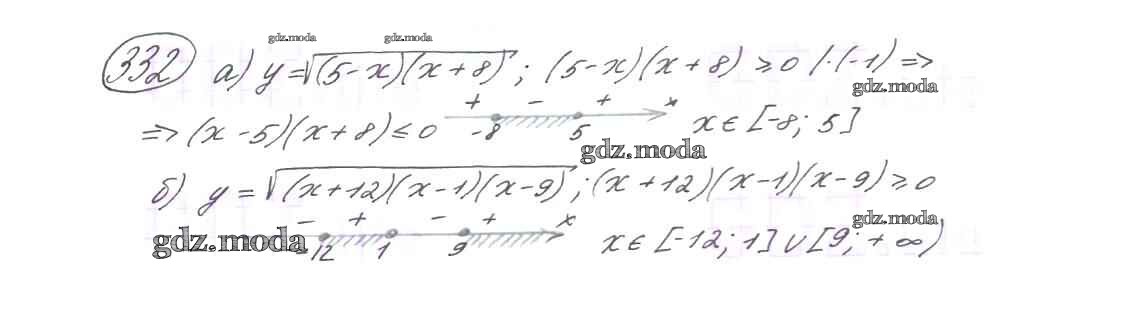 gdz.moda gdz.moda
332 а) y=√(5-x)(x+8); (5-x)(x+8)≥0 |·(-1) =>
gdz.moda
+ - + x
=> (x-5)(x+8)≤0 -8 5 x∈[-8; 5]
gdz.moda
б) y=√(x+12)(x-1)(x-9); (x+12)(x-1)(x-9)≥0
- + - + x gdz.moda
gdz.moda -12 1 9 x∈[-12; 1]∪[9; +∞)